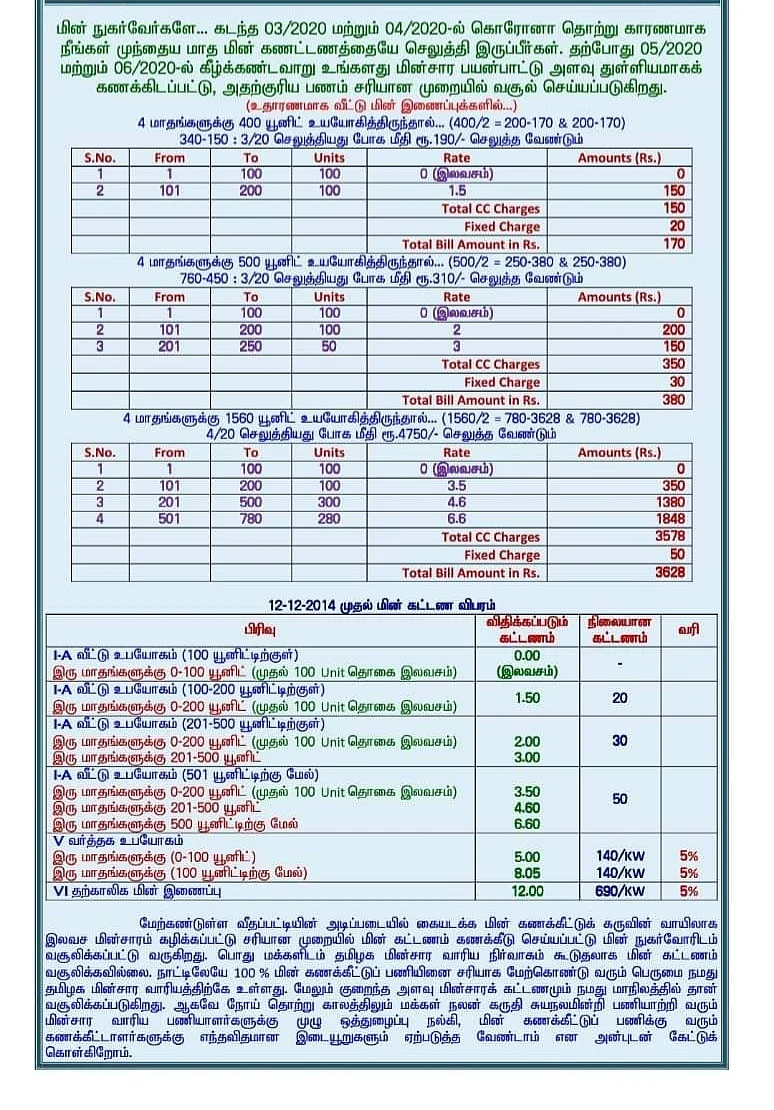 மின் நுகர்வேர்களே... கடந்த 03/2020 மற்றும் 04/2020-ல் கொரோனா தொற்று காரணமாக
நீங்கள் முந்தைய மாத மின் கணட்டணத்தையே செலுத்தி இருப்பீர்கள். தற்போது 05/2020
மற்றும் 06/2020-ல் கீழ்க்கண்டவாறு உங்களது மின்சார பயன்பாட்டு அளவு துள்ளியமாகக்
கணக்கிடப்பட்டு, அதற்குரிய பணம் சரியான முறையில் வசூல் செய்யப்படுகிறது.
(உதாரணமாக வீட்டு மின் இணைப்புக்களில்...)
4 மாதங்களுக்கு 400 யூனிட் உயயோகித்திருந்தால்... (400/2 = 200-170 & 200-170)
340-150 : 3/20 செலுத்தியது போக மீதி ரூ.190/- செலுத்த வேண்டும்
S.No. From To Units Rate Amounts (Rs.)
1 1 100 100 0 (இலவசம்) 0
2 101 200 100 1.5 150
Total CC Charges 150
Fixed Charge 20
Total Bill Amount in Rs. 170
4 மாதங்களுக்கு 500 யூனிட் உயயோகித்திருந்தால்... (500/2 = 250-380 & 250-380)
760-450 : 3/20 செலுத்தியது போக மீதி ரூ.310/- செலுத்த வேண்டும்
S.No. From To Units Rate Amounts (Rs.)
1 1 100 100 0 (இலவசம்) 0
2 101 200 100 2 200
3 201 250 50 3 150
Total CC Charges 350
Fixed Charge 30
Total Bill Amount in Rs. 380
4 மாதங்களுக்கு 1560 யூனிட் உயயோகித்திருந்தால்... (1560/2 = 780-3628 & 780-3628)
4/20 செலுத்தியது போக மீதி ரூ.4750/- செலுத்த வேண்டும்
S.No. From To Units Rate Amounts (Rs.)
1 1 100 100 0 (இலவசம்) 0
2 101 200 100 3.5 350
3 201 500 300 4.6 1380
4 501 780 280 6.6 1848
Total CC Charges 3578
Fixed Charge 50
Total Bill Amount in Rs. 3628
12-12-2014 முதல் மின் கட்டண விபரம்
பிரிவு விதிக்கப்படும் கட்டணம் நிலையான கட்டணம் வரி
I-A வீட்டு உபயோகம் (100 யூனிட்டிற்குள்)
இரு மாதங்களுக்கு 0-100 யூனிட் (முதல் 100 Unit தொகை இலவசம்) 0.00 (இலவசம்) -
I-A வீட்டு உபயோகம் (100-200 யூனிட்டிற்குள்)
இரு மாதங்களுக்கு 0-200 யூனிட் (முதல் 100 Unit தொகை இலவசம்) 1.50 20
I-A வீட்டு உபயோகம் (201-500 யூனிட்டிற்குள்)
இரு மாதங்களுக்கு 0-200 யூனிட் (முதல் 100 Unit தொகை இலவசம்) 2.00 30
இரு மாதங்களுக்கு 201-500 யூனிட் 3.00
I-A வீட்டு உபயோகம் (501 யூனிட்டிற்கு மேல்)
இரு மாதங்களுக்கு 0-200 யூனிட் (முதல் 100 Unit தொகை இலவசம்) 3.50 50
இரு மாதங்களுக்கு 201-500 யூனிட் 4.60
இரு மாதங்களுக்கு 500 யூனிட்டிற்கு மேல் 6.60
V வர்த்தக உபயோகம்
இரு மாதங்களுக்கு (0-100 யூனிட்) 5.00 140/KW 5%
இரு மாதங்களுக்கு (100 யூனிட்டிற்கு மேல்) 8.05 140/KW 5%
VI தற்காலிக மின் இணைப்பு 12.00 690/KW 5%
மேற்கண்டுள்ள வீதப்பட்டியின் அடிப்படையில் கையடக்க மின் கணக்கீட்டுக் கருவின் வாயிலாக
இலவச மின்சாரம் கழிக்கப்பட்டு சரியான முறையில் மின் கட்டணம் கணக்கீடு செய்யப்பட்டு மின் நுகர்வோரிடம்
வசூலிக்கப்பட்டு வருகிறது. பொது மக்களிடம் தமிழக மின்சார வாரிய நிர்வாகம் கூடுதலாக மின் கட்டணம்
வசூலிக்கவில்லை. நாட்டிலேயே 100 % மின் கணக்கீட்டுப் பணியினை சரியாக மேற்கொண்டு வரும் பெருமை நமது
தமிழக மின்சார வாரியத்திற்கே உள்ளது. மேலும் குறைந்த அளவு மின்சாரக் கட்டணமும் நமது மாநிலத்தில் தான்
வசூலிக்கப்படுகிறது. ஆகவே நோய் தொற்று காலத்திலும் மக்கள் நலன் கருதி சுயநலமின்றி பணியாற்றி வரும்
மின்சார வாரிய பணியாளர்களுக்கு முழு ஒத்துழைப்பு நல்கி, மின் கணக்கீட்டுப் பணிக்கு வரும்
கணக்கீட்டாளர்களுக்கு எந்தவிதமான இடையூறுகளும் ஏற்படுத்த வேண்டாம் என அன்புடன் கேட்டுக்
கொள்கிறோம்.